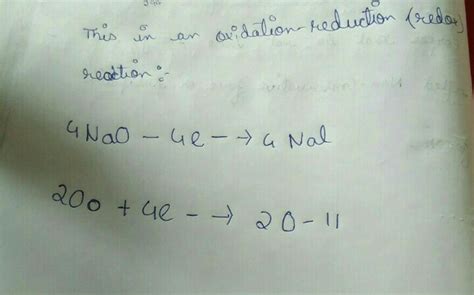 This in an oxidation-reduction (redox)
reaction:-
4NaO - 4e - → 4 NaI
2O0 + 4e - → 2O-II